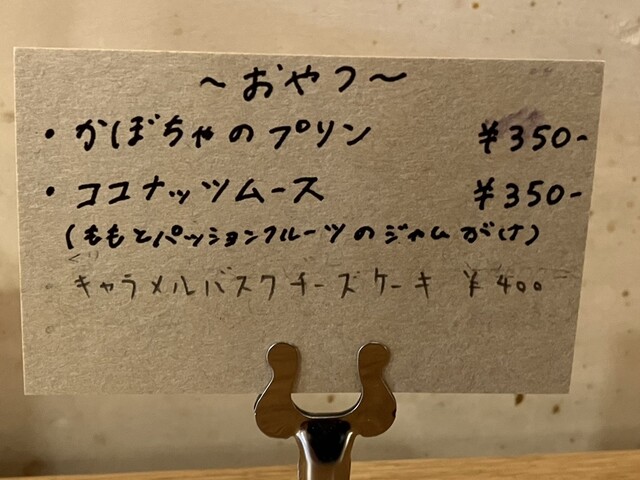 ～おやつ～
・かぼちゃのプリン ¥350-
・ココナッツムース ¥350-
(ももとパッションフルーツのジャムがけ)
キャラメルバスクチーズケーキ ¥400